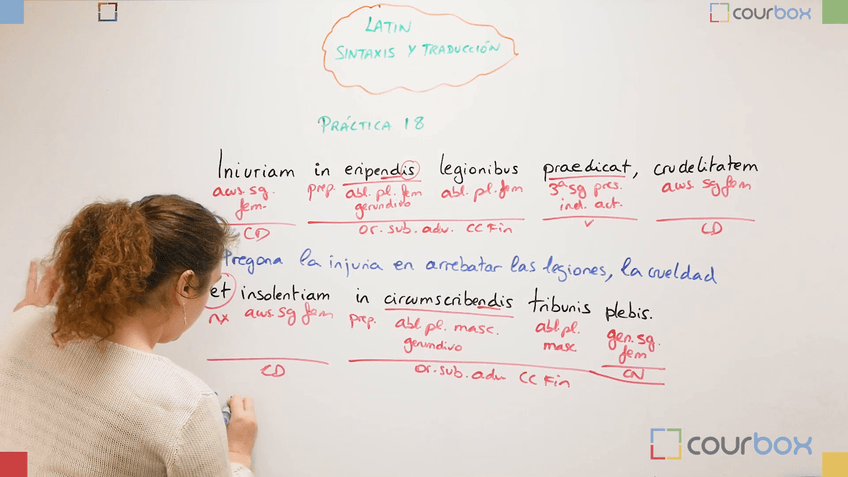 courbox
LATIN
SINTAXIS Y TRADUCCIÓN
PRÁCTICA 18
Iniuriam in eripendis legionibus praedicat, crudelitatem
aws. sg. fem. prep. abl. pl. fem gerundivo abl. pl. fem 3ª sg pres. ind. act. aws. sg fem
CD or. sub. adv. CC Fin v CD
Pregona la injuria en arrebatar las legiones, la crueldad
et insolentiam in circumscribendis tribunis plebis.
nx aws. sg fem prep. abl pl. masc. gerundivo abl pl. masc. gen. sg. fem
CD or. sub. adv CC Fin CN
courbox